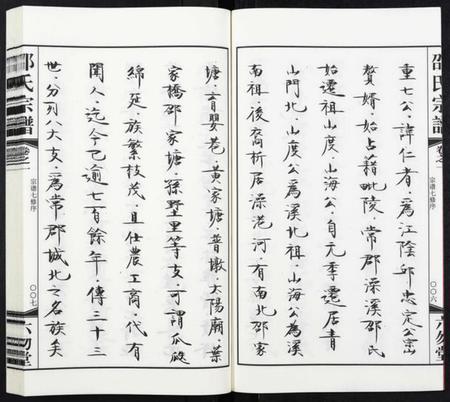 邵氏宗譜
卷之一
宗谱七修序
〇〇六
六勿堂
重七公．諱仁者．為江陰邱忠定公宗山
贅婿．始占藉毗陵．常郡澡溪邵氏
始遷祖山廣．山海公．自元季遷居青
山門北．山廣公為溪北祖．山海公為溪
南祖．後裔析居澡港河．有南北邵家
塘．育嬰巷．黄家塘．普墩．太陽廟．葉
家橋邵家塘．孫墅里等支．可謂瓜瓞
綿延．族繁枝茂．且仕農工商．代有
聞人．迄今已逾七百餘年．傳三十三
世．分列八大支．為常郡城北之名族矣
邵氏宗譜
宗谱七修序
〇〇七
六勿堂